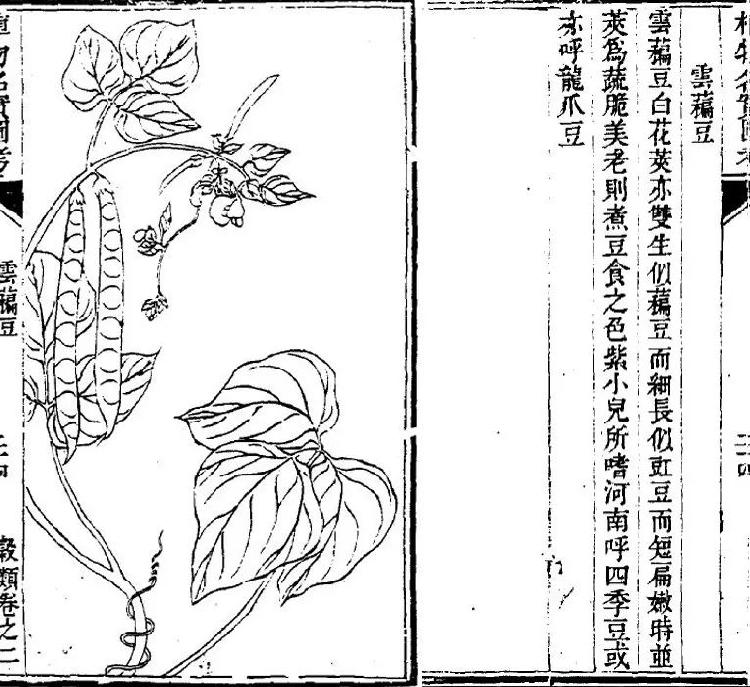 雲藊豆
雲藊豆白花莢亦雙生似藊豆而細長似豇豆而短扁嫩時並
莢爲蔬脆美老則煮豆食之色紫小兒所嗜河南呼四季豆或
亦呼龍爪豆
雲藊豆
穀類卷之二